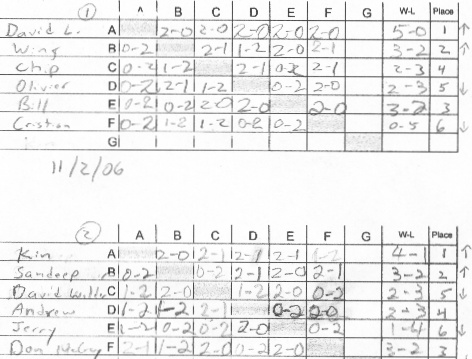 ① A B C D E F G W-L Place
David L. A 2-0 2-0 2-0 2-0 2-0 5-0 1 ↑
Wing B 0-2 2-1 1-2 2-0 2-1 3-2 2 ↑
Chip C 0-2 1-2 2-1 0-2 2-1 2-3 4
Olivier D 0-2 2-1 1-2 0-2 2-0 2-3 5 ↓
Bill E 0-2 0-2 2-0 2-0 2-0 3-2 3
Cristian F 0-2 1-2 1-2 0-2 0-2 0-5 6 ↓
G
11/2/06
② A B C D E F G W-L Place
Kin A 2-0 2-1 2-1 2-1 1-2 4-1 1 ↑
Sandeep B 0-2 0-2 2-1 2-0 2-1 3-2 2 ↑
David C 1-2 2-0 1-2 2-0 0-2 2-3 5 ↓
Andrew D 1-2 1-2 2-1 0-2 2-0 2-3 4
Jerry E 1-2 0-2 0-2 2-0 0-2 1-4 6 ↓
Don F 2-1 1-2 2-0 0-2 2-0 3-2 3